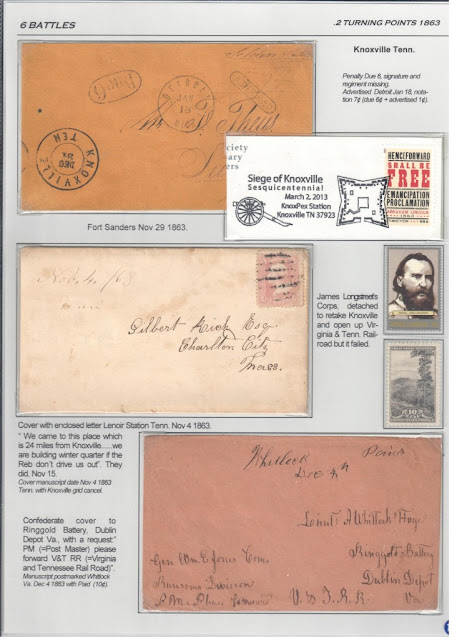 6 BATTLES
.2 TURNING POINTS 1863
Knoxville Tenn.
Penalty Due 6, signature and
regiment missing.
Advertised Detroit Jan 18, nota-
tion 7¢ (due 6¢ + advertised 1¢).
Due 6
DETROIT
JAN
18
KNOXVILLE
TEN
DEC
Fort Sanders Nov 29 1863.
Siege of Knoxville
Sesquicentennial
March 2, 2013
KnoxPex Station
Knoxville TN 37923
HENCEFORWARD
SHALL BE
FREE
EMANCIPATION
PROCLAMATION
ABRAHAM LINCOLN
1863
James Longstreet's
Corps, detached
to retake Knoxville
and open up Vir-
ginia & Tenn. Rail-
road but it failed.
Nov. 4, /63
Gilbert Rich Esq.
Charlton City
Mass.
10
Cover with enclosed letter Lenoir Station Tenn. Nov 4 1863.
" We came to this place which
is 24 miles from Knoxville.....we
are building winter quarter if the
Reb don't drive us out". They
did, Nov 15.
Cover manuscript date Nov 4 1863
Tenn. with Knoxville grid cancel.
Confederate cover to
Ringgold Battery, Dublin
Depot Va., with a request:"
PM (=Post Master) please
forward V&T RR (=Virginia
and Tennessee Rail Road)".
Manuscript postmarked Whitlock
Va. Dec 4 1863 with Paid (10¢).
Whitlock
Dec 4th
Paid
Lieut A Whitlock
Ringgold Battery
Dublin Depot
Va
Gen Wm E Jones Com.
Ransoms Division
P.M. Please forward
V. & T. R. R.